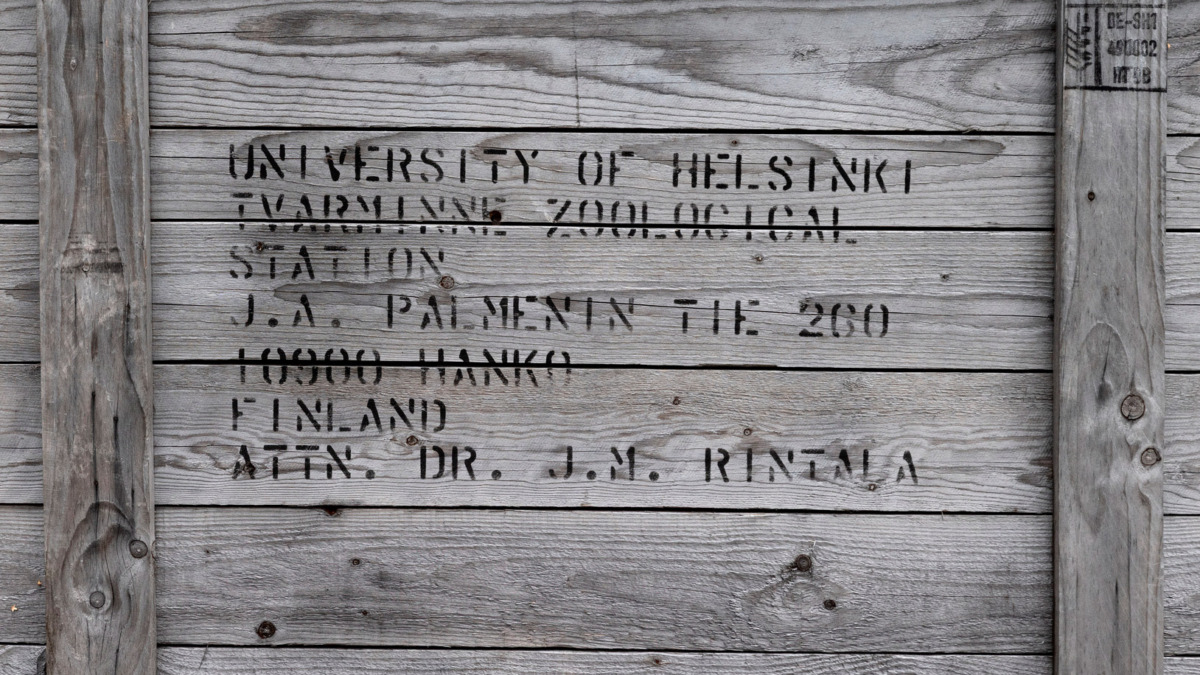 UNIVERSITY OF HELSINKI
TVARMINNE ZOOLOGICAL
STATION
J.A. PALMENIN TIE 260
10900 HANKO
FINLAND
ATTN. DR. J.M. RINTALA